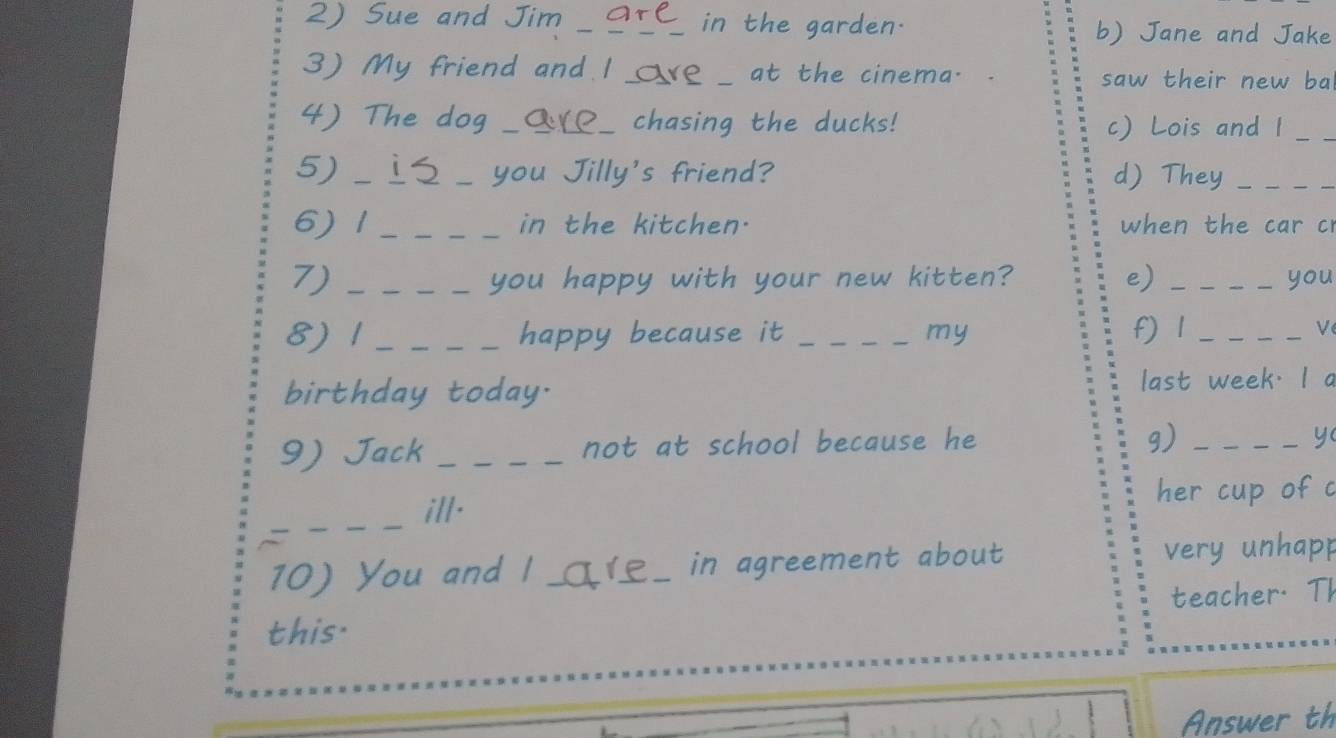 2) Sue and Jim _ are _ in the garden.
3) My friend and I _ are _ at the cinema.
4) The dog _ are _ chasing the ducks!
5) _ is _ you Jilly's friend?
6) I _ _ _ _ in the kitchen.
7) _ _ _ _ you happy with your new kitten?
8) I _ _ _ _ happy because it _ _ _ _ my
birthday today.
9) Jack _ _ _ _ not at school because he
_ _ _ _ ill.
10) You and I _ are _ in agreement about
this.
b) Jane and Jake
saw their new
c) Lois and I _ _
d) They _ _ _ _
when the car
e) _ _ _ _ you
f) I _ _ _ _
last week. I
g) _ _ _ _
her cup of
very
teacher.
Answer